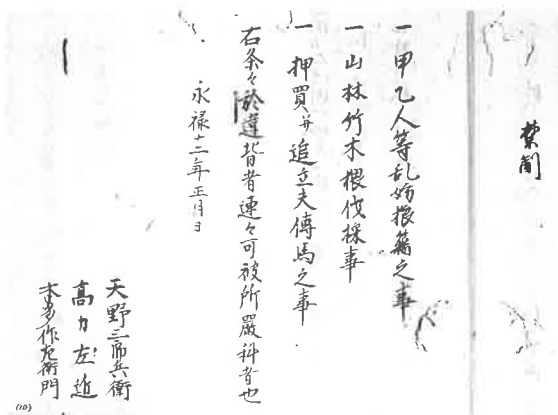 禁制
一 甲乙人等乱妨狼藉之事
一 山林竹木猥伐採事
一 押買并追立夫傳馬之事
右条々於違背者速々可被所嚴科者也
永禄十二年正月日
天野三郎兵衛
高力左近
本多作左衛門
(10)